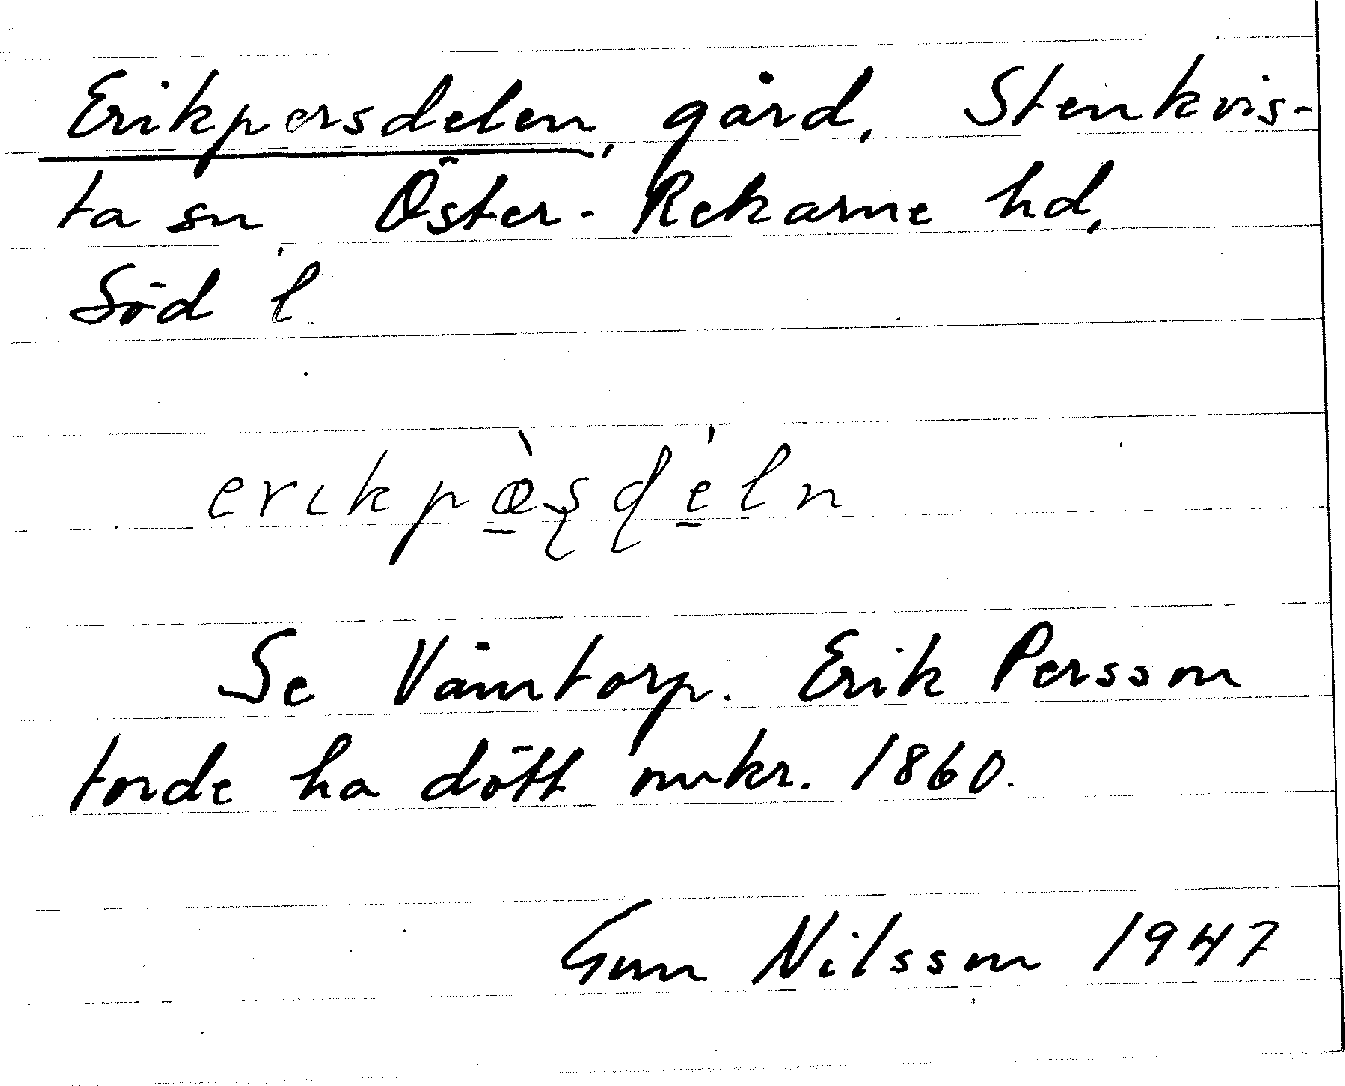 Erikpersdelen, gård, Stenkvis-
ta sn, Öster-Rekarne hd,
Söd l.
erikpæ̀ṣḍéln
Se Våmtorp. Erik Persson
torde ha dött omkr. 1860.
Gun Nilsson 1947